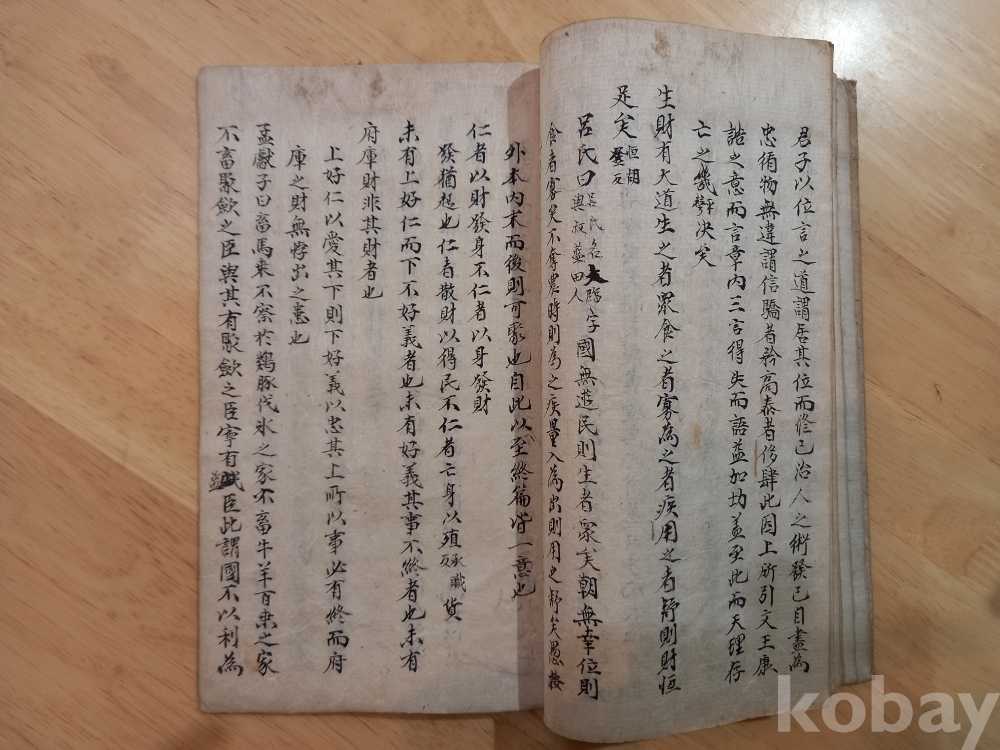 君子以位言之道謂居其位而修己治人之術發己自盡為
忠循物無違謂信驕者矜高泰者侈肆此因上所引文王康
誥之意而言章內三言得失而語益加切蓋至此而天理存
亡之幾決矣
生財有大道生之者眾食之者寡為之者疾用之者舒則財恒
足矣 恒胡登反
呂氏曰 呂氏名大臨字與叔藍田人 國無遊民則生者眾矣朝無幸位則
食者寡矣不奪農時則為之疾量入為出則用之舒矣愚按
外本內末而後則可聚也自此以至終篇皆一意也
仁者以財發身不仁者以身發財
發猶起也仁者散財以得民不仁者亡身以殖貨
未有上好仁而下不好義者也未有好義其事不終者也未有
府庫財非其財者也
上好仁以愛其下則下好義以忠其上所以事必有終而府
庫之財無悖出之患也
孟獻子曰畜馬乘不察於鷄豚伐氷之家不畜牛羊百乘之家
不畜聚斂之臣與其有聚斂之臣寧有盜臣此謂國不以利為
kobay